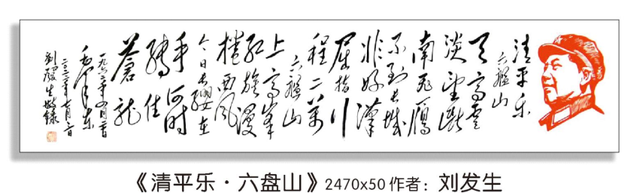 清平乐
六盘山
天高云
淡望断
南飞雁
不到长城
非好汉
屈指行
程二万
六盘山
上高峰
红旗漫
卷西风
今日长缨在
手何时
缚住
苍龙
毛泽东
刘发生敬录
《清平乐·六盘山》2470x50 作者：刘发生